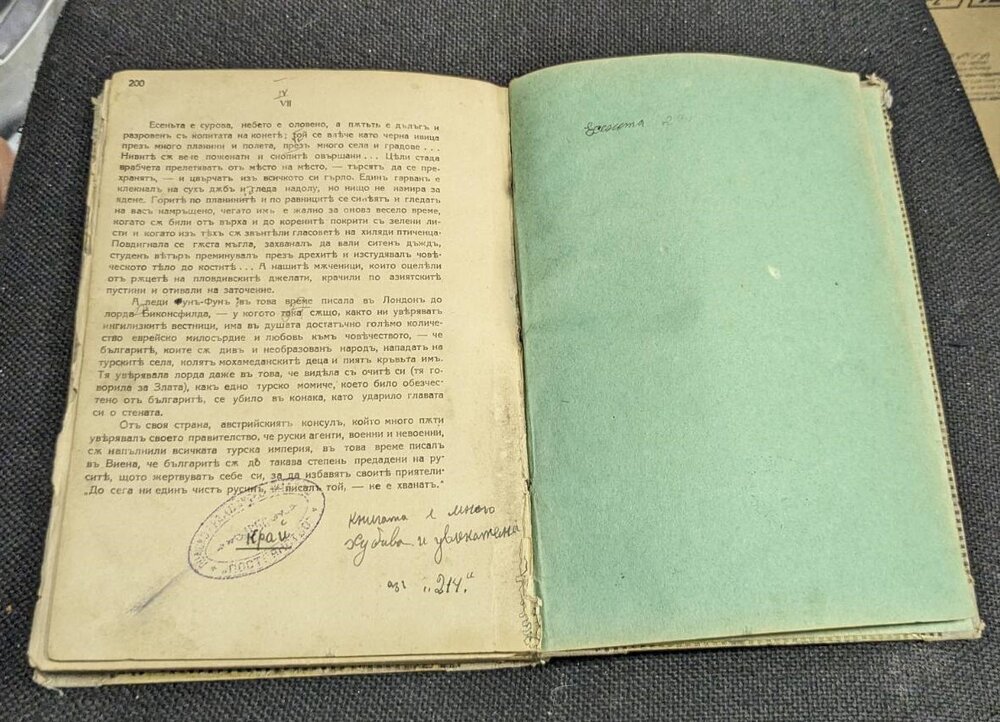 200
IV
VII
Есеньта е сурова, небето е оловено, а пѫтьтъ е дълъгъ и
разровенъ съ копитата на конетѣ; той се влѣче като черна ивица
презъ много планини и полета, презъ много села и градове . . .
Нивитѣ сѫ вече поженати и снопитѣ овършани . . . Цѣли стада
врабчета прелетяватъ отъ мѣсто на мѣсто, — търсятъ да се пре-
хранятъ, — и цвърчатъ изъ всичкото си гърло. Единъ гарванъ е
клекналъ на сухъ джбъ и гледа надолу, но нищо не намира за
ядене. Горитѣ по планинитѣ и по равницитѣ се синѣятъ и гледатъ
на васъ намръщено, чегато имъ е жално за онова весело време,
когато сѫ били отъ върха и до коренитѣ покрити съ зелени ли-
сти и когато изъ тѣхъ сѫ звънтѣли гласоветѣ на хиляди птиченца.
Повдигнала се гѫста мъгла, захваналъ да вали ситенъ дъждъ,
студенъ вѣтъръ преминувалъ презъ дрехитѣ и изстудявалъ човѣ-
ческото тѣло до коститѣ . . . А нашитѣ мѫченици, които оцелѣли
отъ рѫцетѣ на пловдивскитѣ джелати, крачили по азиятскитѣ
пустини и отивали на заточение.
А леди Фунъ-Фунъ въ това време писала въ Лондонъ до
лорда Биконсфилда, — у когото тока сѫщо, както ни уверяватъ
ингилизкитѣ вестници, има въ душата достатъчно голѣмо количе-
ство еврейско милосърдие и любовь къмъ човѣчеството, — че
българитѣ, които сѫ дивъ и необразованъ народъ, нападатъ на
турскитѣ села, колятъ мохамеданскитѣ деца и пиятъ кръвьта имъ.
Тя уверявала лорда даже въ това, че видѣла съ очитѣ си (тя го-
ворила за Злата), какъ едно турско момиче, което било обезчес-
тено отъ българитѣ, се убило въ конака, като ударило главата
си о стената.
Отъ своя страна, австрийскиятъ консулъ, който много пѫти
уверявалъ своето правителство, че руски агенти, военни и невоенни,
сѫ напълнили всичката турска империя, въ това време писалъ
въ Виена, че българитѣ сѫ до такава степень предадени на ру-
ситѣ, щото жертвуватъ себе си, за да избавятъ своитѣ приятели-
„До сега ни единъ чистъ русинъ, — писалъ той, — не е хванатъ.“
Край
Книгата е много
Хубава и увлекателна
"214."